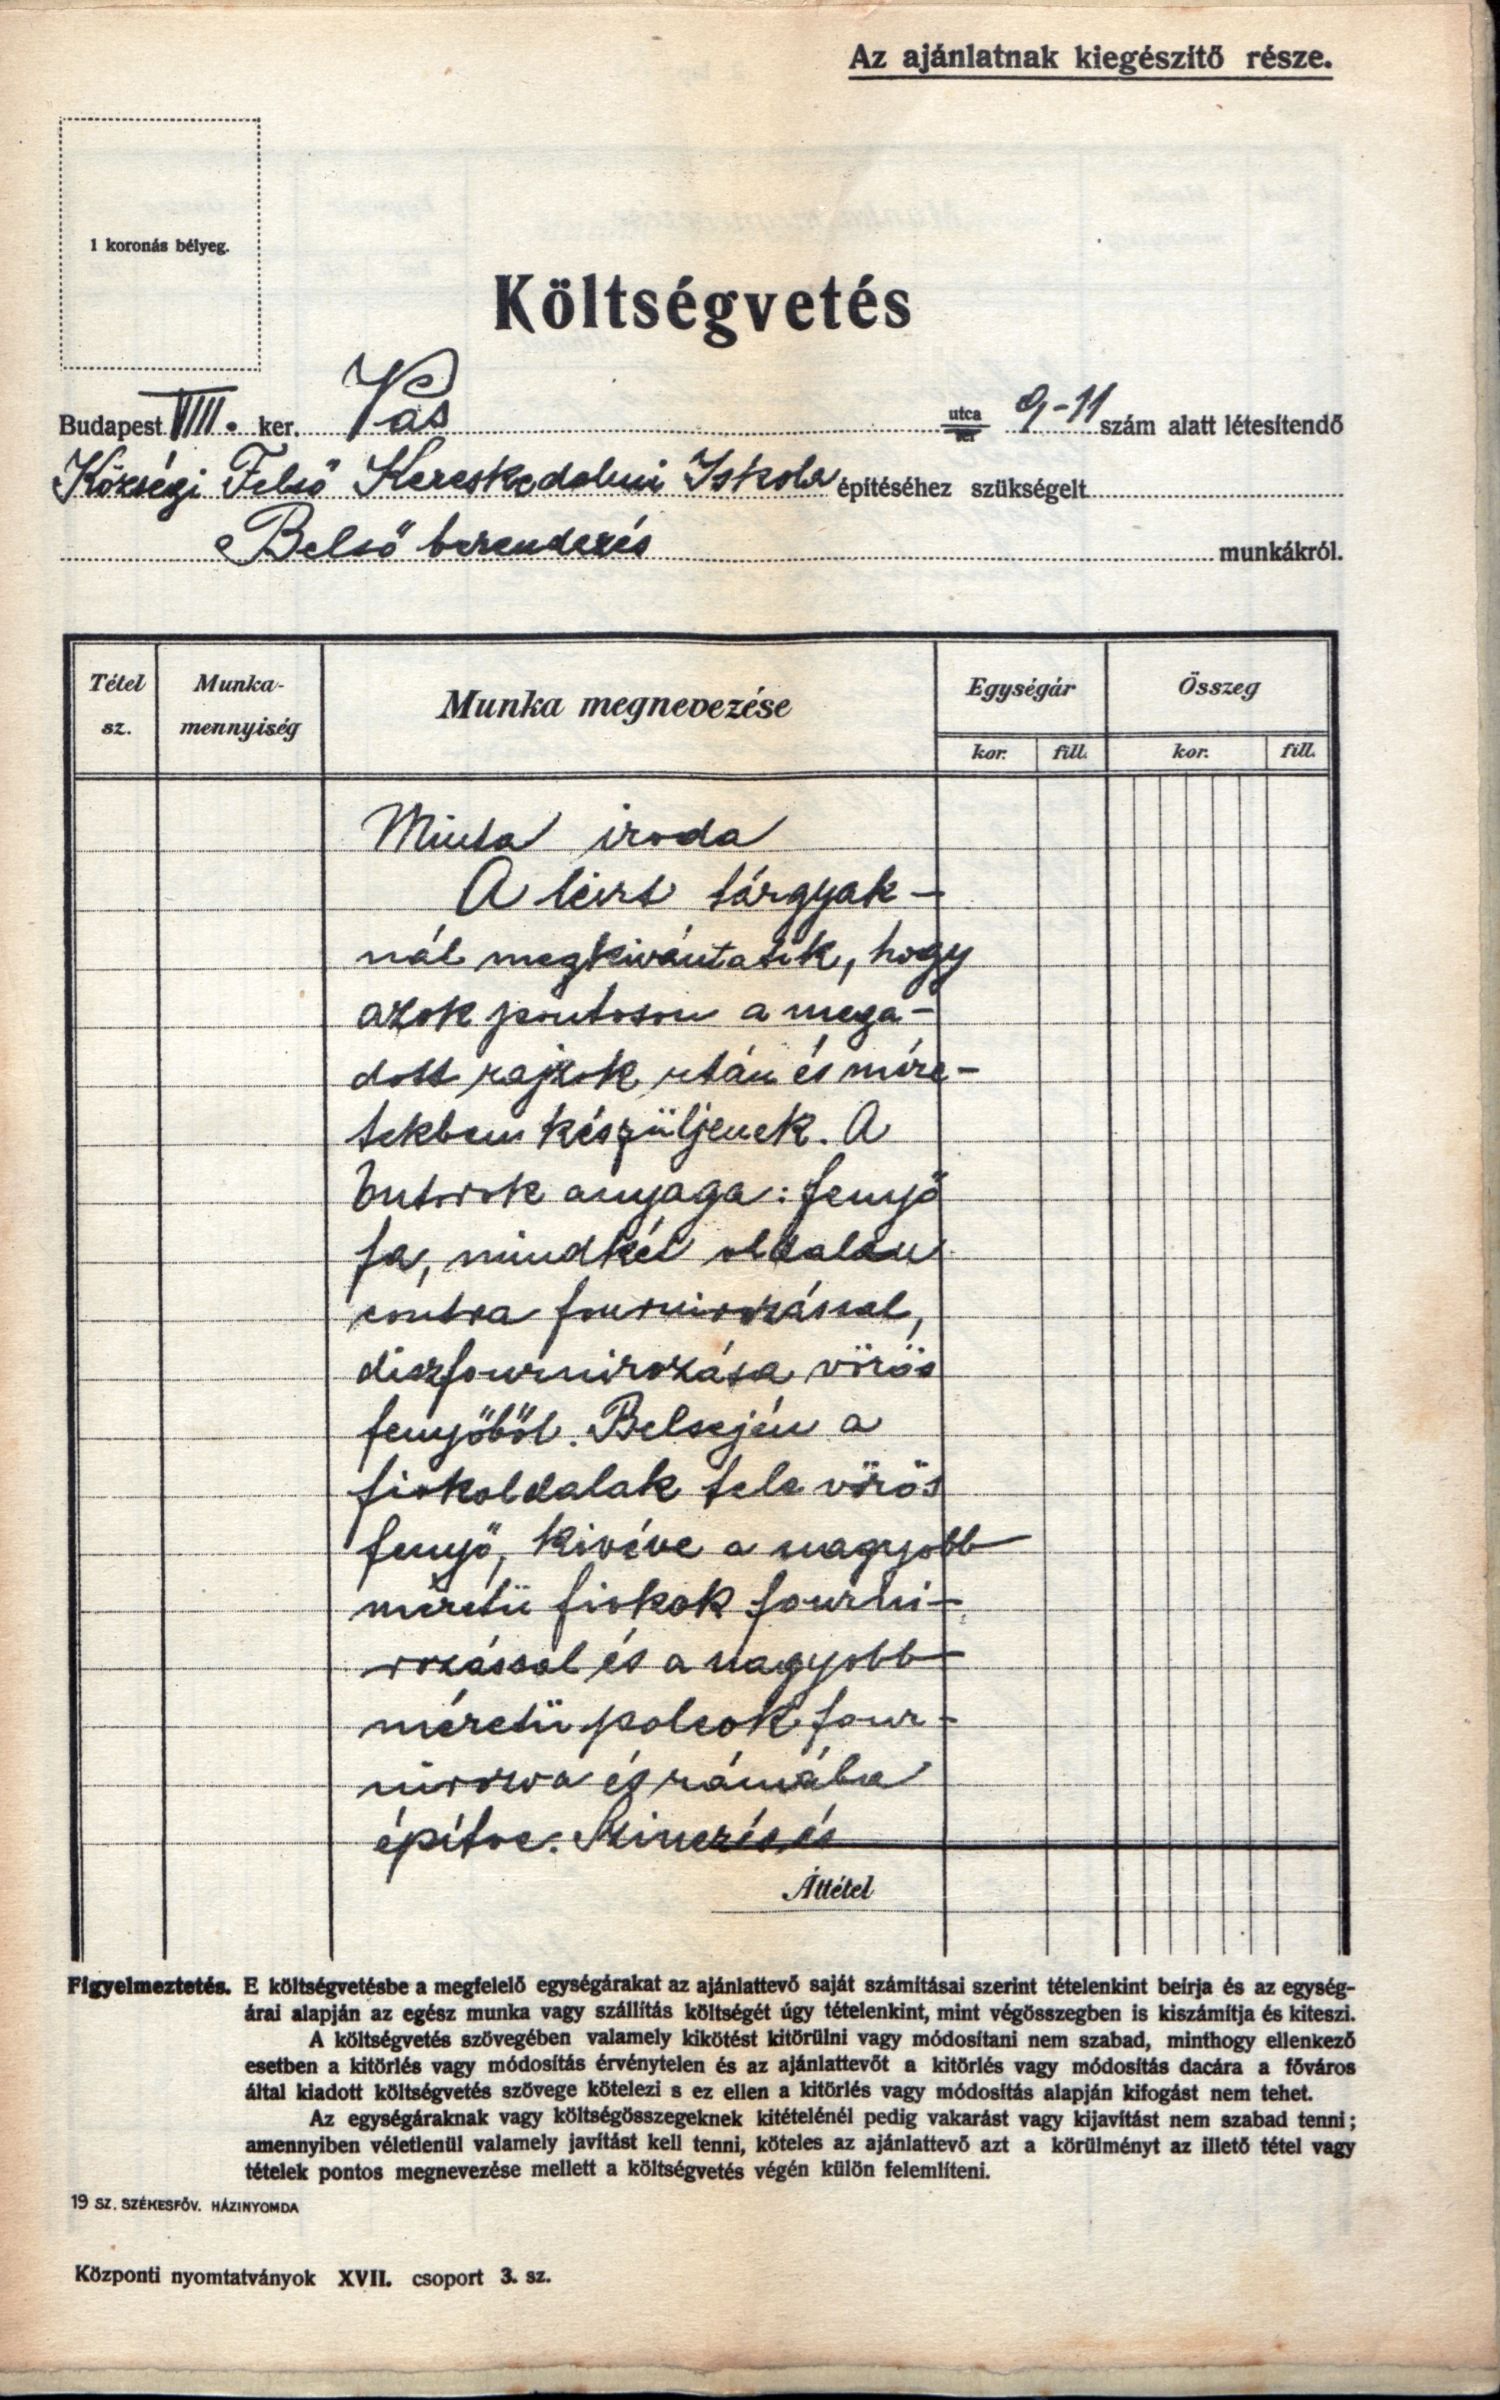 Az ajánlatnak kiegészítő része.
1 koronás bélyeg.
Költségvetés
Budapest VIII. ker. Vas utca tér 9-11 szám alatt létesítendő
Községi Felső Kereskedelmi Iskola építéséhez szükségelt
Belső berendezés munkákról.
Tétel sz. Munka-mennyiség Munka megnevezése Egységár Összeg
kor. fill. kor. fill.
Minta iroda
A leirt tárgyak-
nál megkivántatik, hogy
azok pontoson a mega-
dott rajzok után és mére-
tekben készüljenek. A
butorok anyaga: fenyő
fa, mindkét oldalán
contra fournirozással,
diszfournirozása vörös
fenyőből. Belsején a
fiokoldalak tele vörös
fenyő, kivéve a nagyobb
méretü fiokok fourni-
rozással és a nagyobb
méretü polcok four-
nirozva és rámába
építve. Szinezés és
Áttétel
Figyelmeztetés. E költségvetésbe a megfelelő egységárakat az ajánlattevő saját számításai szerint tételenkint beírja és az egység-
árai alapján az egész munka vagy szállítás költségét úgy tételenkint, mint végösszegben is kiszámítja és kiteszi.
A költségvetés szövegében valamely kikötést kitörülni vagy módosítani nem szabad, minthogy ellenkező
esetben a kitörlés vagy módosítás érvénytelen és az ajánlattevőt a kitörlés vagy módosítás dacára a főváros
által kiadott költségvetés szövege kötelezi s ez ellen a kitörlés vagy módosítás alapján kifogást nem tehet.
Az egységáraknak vagy költségösszegeknek kitételénél pedig vakarást vagy kijavítást nem szabad tenni;
amennyiben véletlenül valamely javítást kell tenni, köteles az ajánlattevő azt a körülményt az illető tétel vagy
tételek pontos megnevezése mellett a költségvetés végén külön felemlíteni.
19 SZ. SZÉKESFŐV. HÁZINYOMDA
Központi nyomtatványok XVII. csoport 3. sz.